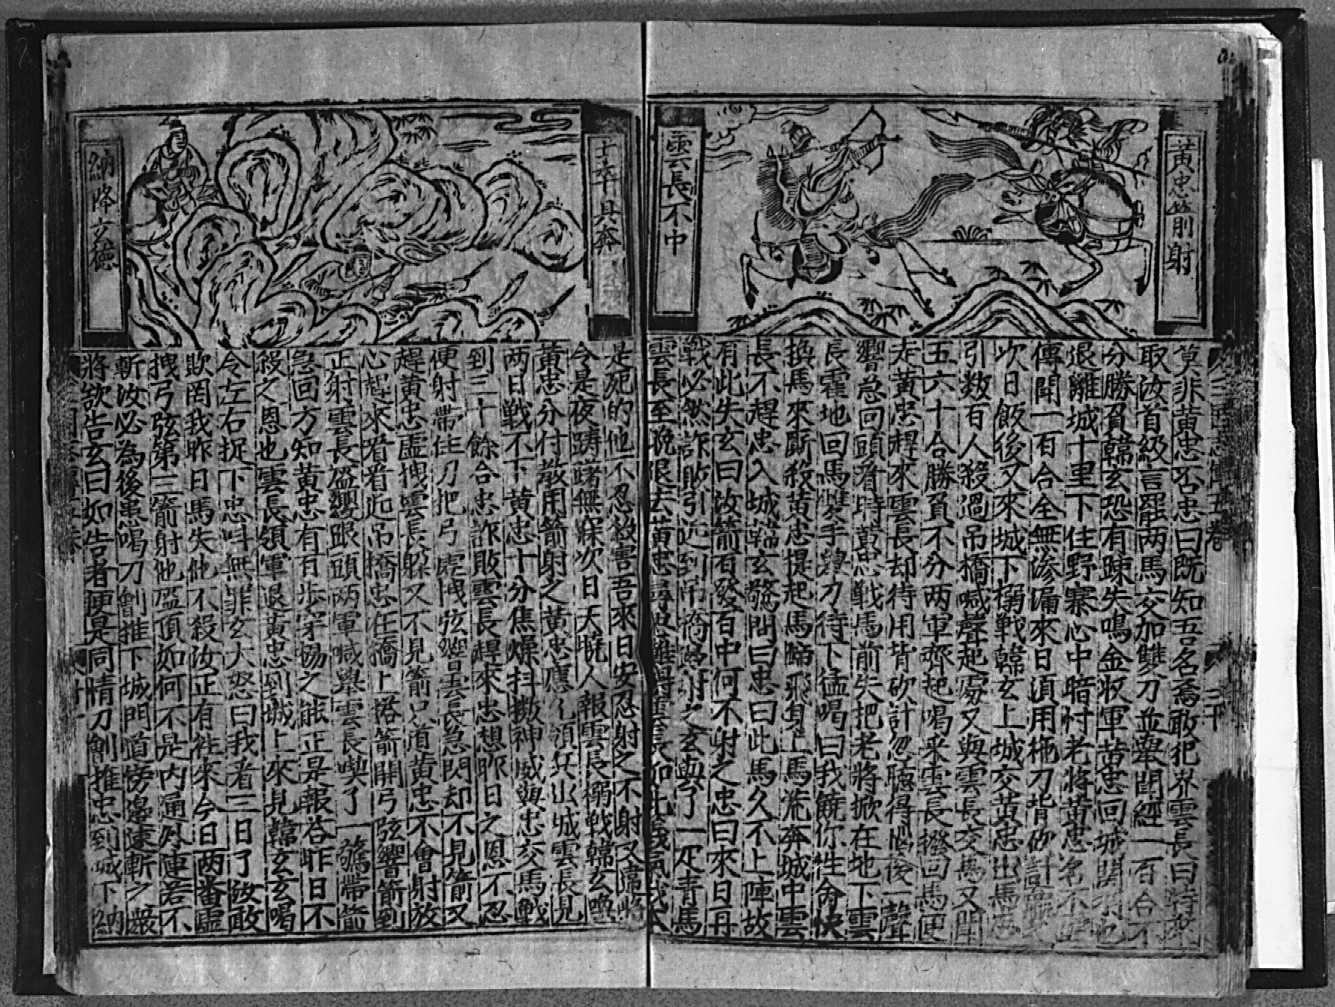 黃忠箭射
雲長不中
莫非黃忠否忠曰既知吾名焉敢犯界雲長曰特來
取汝首級言罷兩馬交加雙刀並舉閗經一百合不
分勝負韓玄恐有踈失鳴金收軍黃忠回城關羽也
退離城十里下住野寨心中暗忖老將黃忠名不虛
傳閗一百合全無滲漏來日須用拖刀背砍計
次日飯後又來城下搦戰韓玄上城交黃忠出馬忠
引数百人殺過吊橋喊聲起處又與雲長交馬又閗
五六十合勝負不分两軍齊起喝采雲長撥回馬便
走黃忠趕來雲長却待用背砍計忽聽得腦後一聲
響急回頭看時黃忠戰馬前失把老將掀在地下雲
長霍地回馬雙手舉刀待下猛喝曰我饒你性命快
換馬來厮殺黃忠提起馬蹄飛身上馬流奔城中雲
長不趕忠入城韓玄驚問曰忠曰此馬久不上陣故
有此失玄曰汝箭有發有中何不射之忠曰來日再
戰必然詐敗引近到吊橋邊射之玄與了一疋青馬
雲長至晚退去黃忠尋思難得雲長如此義氣我不
十卒具奔
納降玄德
是死的他不忍殺害吾來日安忍射之不射又違將
令是夜躊躇無寐次日天曉人報雲長搦戰韓玄喚
黃忠分付敢用箭射之黃忠應了領兵出城雲長見
两日戰不下黃忠十分焦燥抖擻神威與忠交馬戰
到三十餘合忠詐敗雲長趕來忠想昨日之恩不忍
便射帶住刀把弓虛拽弦響雲長急閃却不見箭又
趕黃忠虛拽雲長躲又不見箭只道黃忠不會射放
心趕來看看近吊橋忠在橋上搭箭開弓弦響箭到
正射雲長盔纓跟頭兩軍喊舉雲長喫了一驚帶箭
急回方知黃忠有百步穿楊之能正是報荅昨日不
殺之恩也雲長領軍退黃忠到城上來見韓玄玄喝
令左右捉下忠叫無罪玄大怒曰我看三日了敢
欺罔我昨日馬失他不殺汝正有往來今日两番虛
拽弓弦第三箭射他盔頂如何不是內通外連若不
斬汝必為後患喝刀劊推下城門道傍邊速斬之嚴
將欲告玄曰如告者便是同情刀劊推忠到城下納